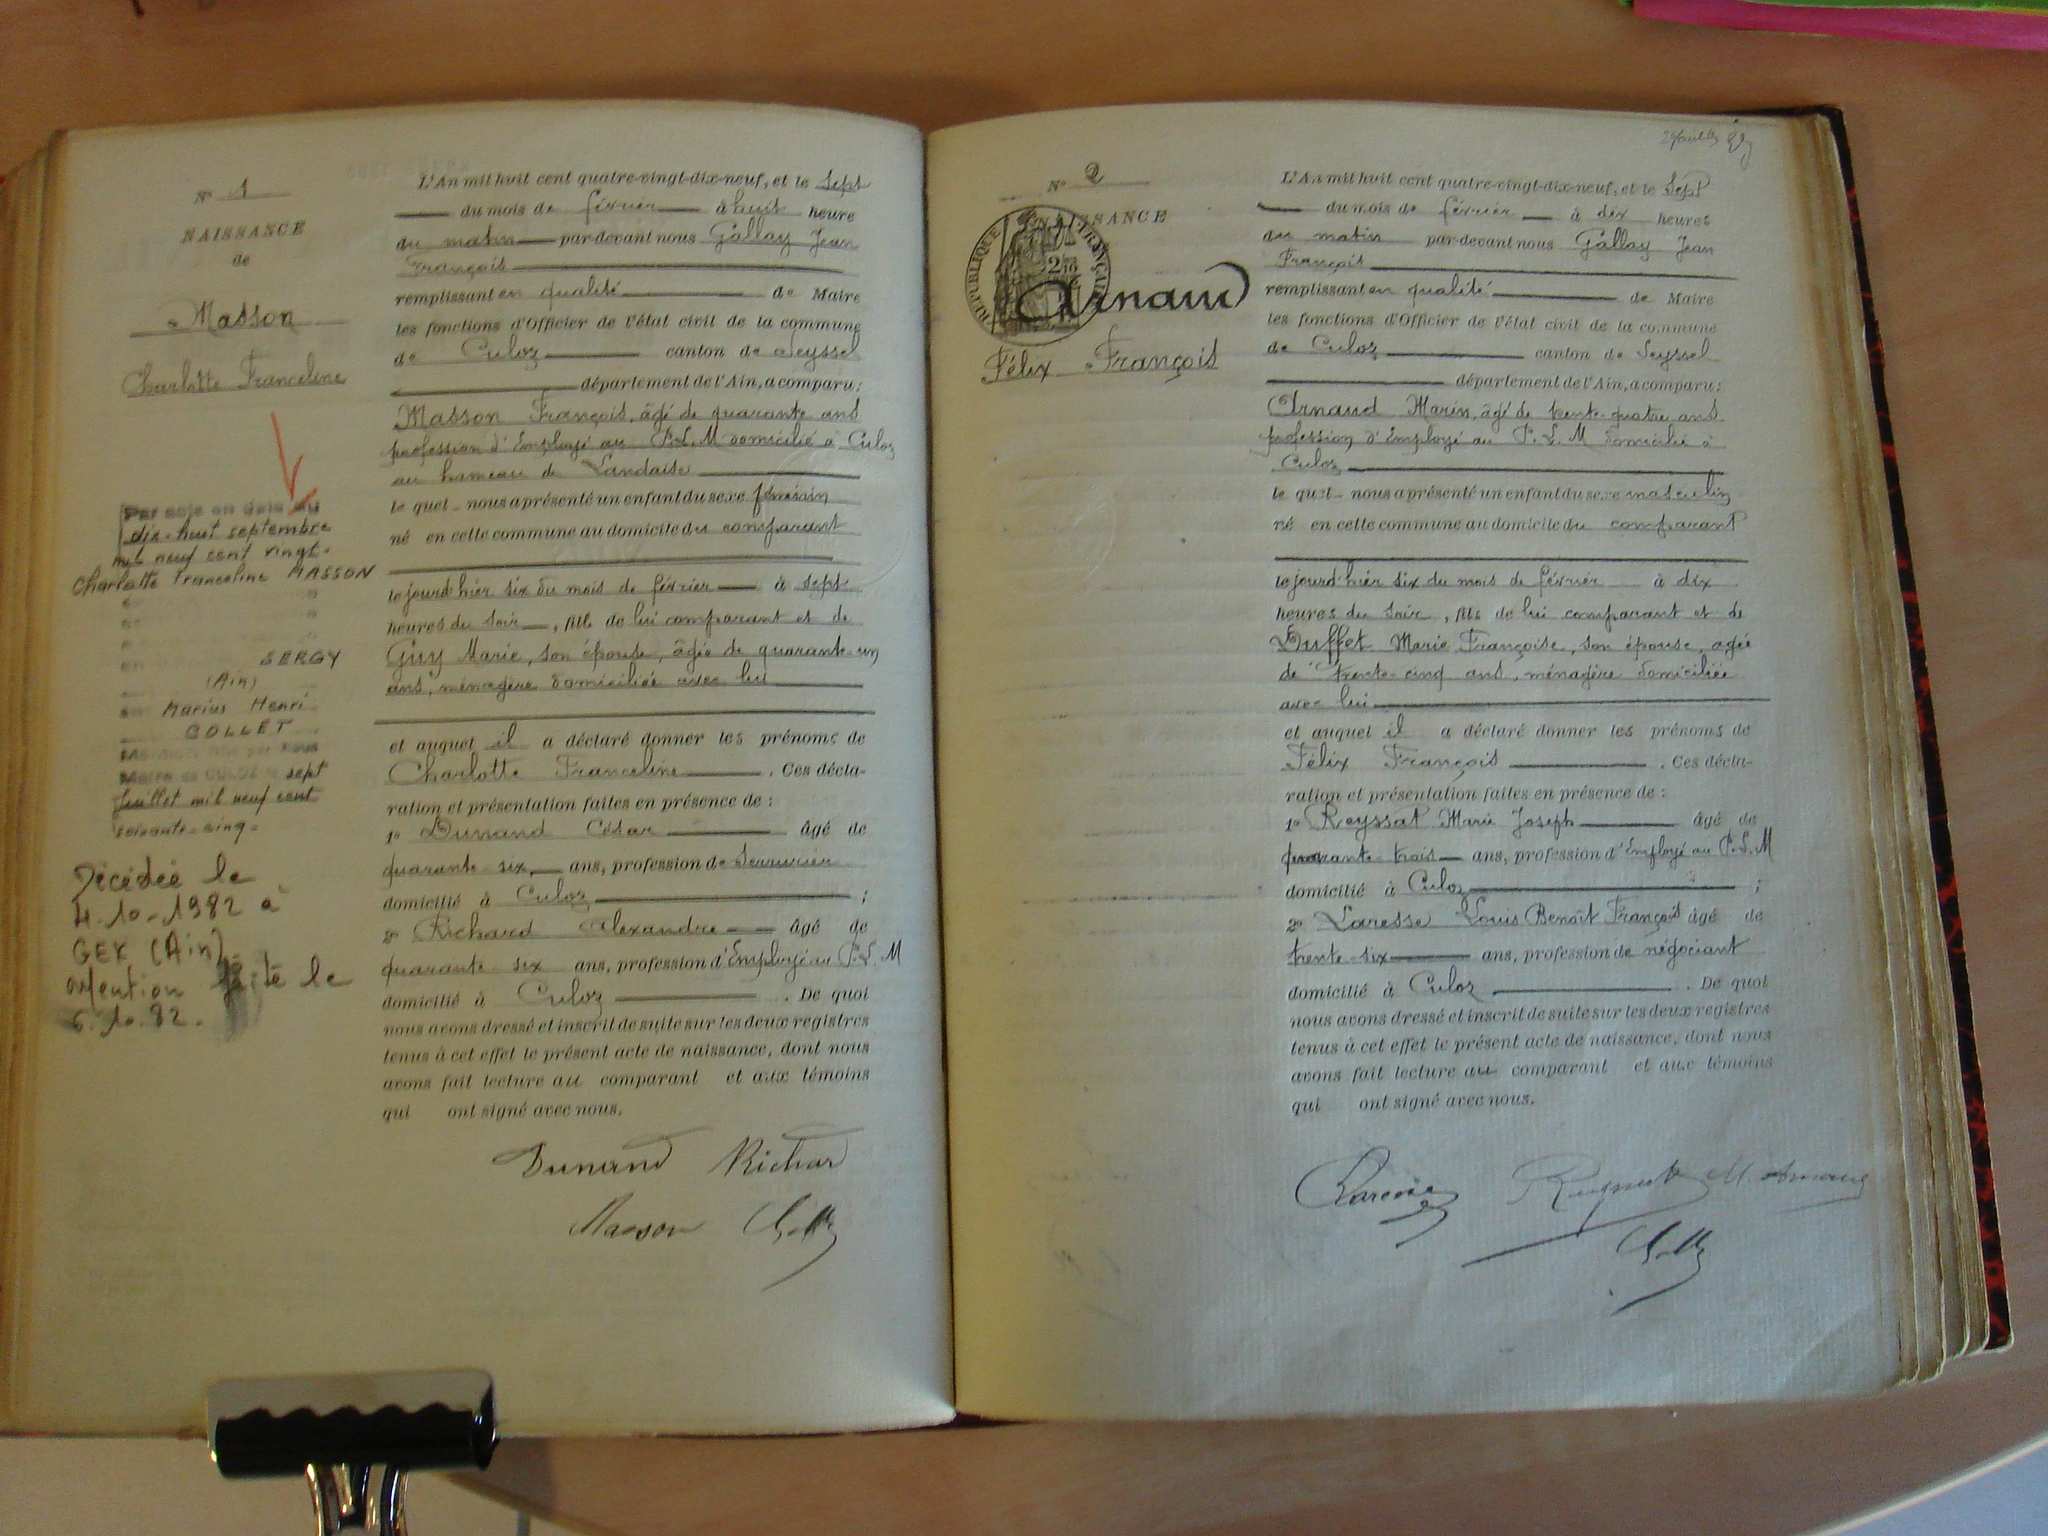 N° 1
NAISSANCE
de
Masson
Charlotte Franceline
Par acte en date du
dix-huit septembre
mil neuf cent vingt-
Charlotte Franceline MASSON
SERGY
(Ain)
Marius Henri
COLLET
Maire de CULOZ le sept
juillet mil neuf cent
soixante-cinq-
Décédée le
4.10.1982 à
GEX (Ain).
Mention faite le
6.10.82.
L'An mil huit cent quatre-vingt-dix-neuf, et le sept
du mois de février à huit heure
du matin par-devant nous Gallay Jean
François
remplissant en qualité de Maire
les fonctions d'Officier de l'état civil de la commune
de Culoz canton de Seyssel
département de l'Ain, a comparu:
Masson François, âgé de quarante ans
profession d'Employé au P.L.M domicilié à Culoz
au hameau de Landaise
le quel nous a présenté un enfant du sexe féminin
né en cette commune au domicile du comparant
le jourd'hier six du mois de février à sept
heures du soir, fille de lui comparant et de
Guy Marie, son épouse, âgée de quarante-un
ans, ménagère domiciliée avec lui
et auquel il a déclaré donner les prénoms de
Charlotte Franceline. Ces décla-
ration et présentation faites en présence de:
1° Dunand César âgé de
quarante-six ans, profession de Serrurier
domicilié à Culoz;
2° Richard Alexandre âgé de
quarante-six ans, profession d'Employé au P.L.M
domicilié à Culoz. De quoi
nous avons dressé et inscrit de suite sur les deux registres
tenus à cet effet le présent acte de naissance, dont nous
avons fait lecture au comparant et aux témoins
qui ont signé avec nous.
Dunand Richard
Masson
N° 2
NAISSANCE
RÉPUBLIQUE FRANÇAISE
Arnaud
Félix François
L'An mil huit cent quatre-vingt-dix-neuf, et le Sept
du mois de février à dix heures
du matin par-devant nous Gallay Jean
François
remplissant en qualité de Maire
les fonctions d'Officier de l'état civil de la commune
de Culoz canton de Seyssel
département de l'Ain, a comparu:
Arnaud Marin, âgé de trente-quatre ans
profession d'Employé au P.L.M domicilié à
Culoz
le quel nous a présenté un enfant du sexe masculin
né en cette commune au domicile du comparant
le jourd'hier six du mois de février à dix
heures du soir, fils de lui comparant et de
Duffet Marie Françoise, son épouse, agée
de trente-cinq ans, ménagère domiciliée
avec lui
et auquel il a déclaré donner les prénoms de
Félix François. Ces décla-
ration et présentation faites en présence de:
1° Reyssat Marie Joseph âgé de
quarante-trois ans, profession d'Employé au P.L.M
domicilié à Culoz;
2° Laresse Louis Benoît François âgé de
trente-six ans, profession de négociant
domicilié à Culoz. De quoi
nous avons dressé et inscrit de suite sur les deux registres
tenus à cet effet le présent acte de naissance, dont nous
avons fait lecture au comparant et aux témoins
qui ont signé avec nous.
M. Arnaud